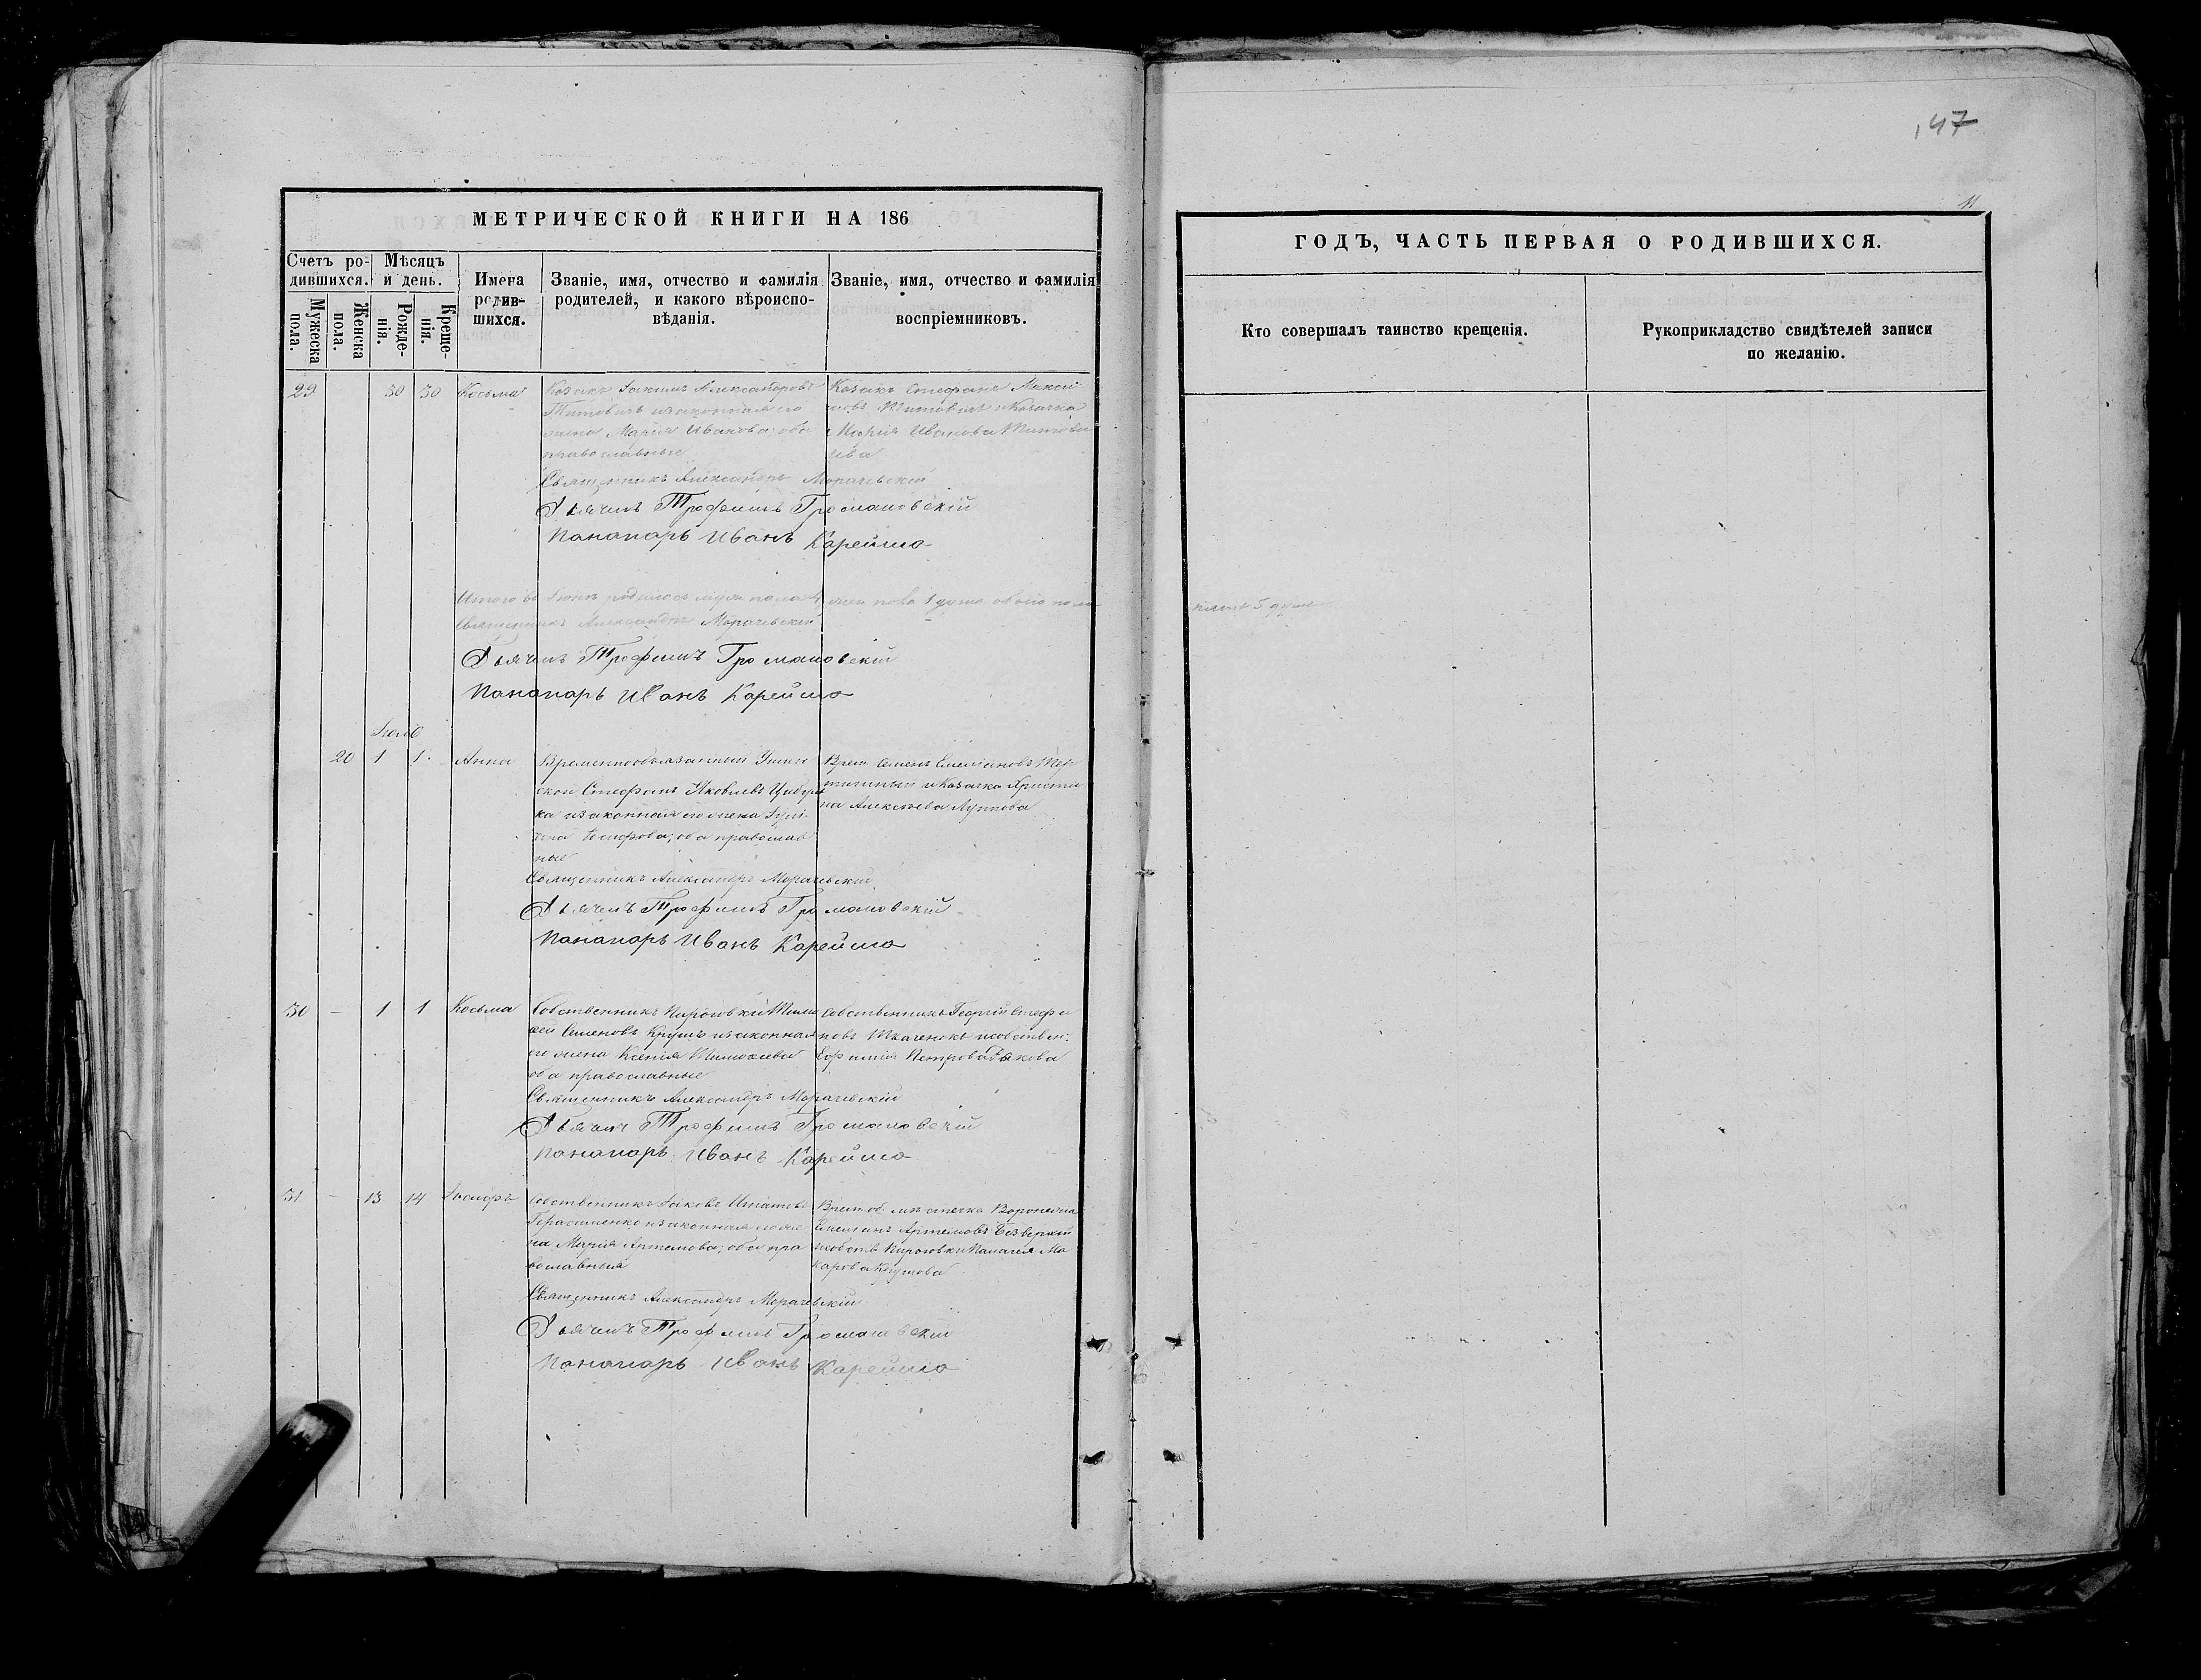 147
11
МЕТРИЧЕСКОЙ КНИГИ НА 186
ГОДЪ, ЧАСТЬ ПЕРВАЯ О РОДИВШИХСЯ.
Счетъ ро-
дившихся.
Мужеска
пола.
Женска
пола.
Мѣсяцъ
и день.
Рожде-
нія.
Креще-
нія.
Имена
родив-
шихся.
Званіе, имя, отчество и фамилія
родителей, и какого вѣроиспо-
вѣданія.
Званіе, имя, отчество и фамилія
воспріемниковъ.
Кто совершалъ таинство крещенія.
Рукоприкладство свидѣтелей записи
по желанію.
29 30 30 Косьма
Козакъ Іакимъ Александровъ
Титовичъ изаконная его
жена Марія Иванова оба
православные
Козакъ Стефанъ
Титовичъ иКозачка
Марія Иванова Титови
чева
Священникъ Александръ Морачевскій
Дьячекъ Трофимъ Громаковскій
Панамарь Иванъ Карейша
Итого въ Іюнѣ родилось муж пола 4, жен пола 1 душа обоего пола
пять 5 душъ
Священникъ Александръ Морачевскій
Дьячекъ Трофимъ Громаковскій
Панамарь Иванъ Карейша
Іюль
20 1 1 Анна
Временнообязанный
Стефанъ Яковлевъ Цибуль
ка изаконная его жена
Іосифова; оба православ
ные
Врем Семенъ Емельяновъ
иКозачка Христи
на Алексѣева
Священникъ Александръ Морачевскій
Дьячекъ Трофимъ Громаковскій
Панамарь Иванъ Карейша
30 – 1 1 Косьма
Собственникъ Пироговки Тимо
фей Семеновъ изаконная
его жена Ксенія Тимофеева
оба православные
Собственникъ Георгій Стефа
новъ Ткаченокъ исобствен:
Ефимія Петрова
Священникъ Александръ Морачевскій
Дьячекъ Трофимъ Громаковскій
Панамарь Иванъ Карейша
31 – 13 14 Іосифъ
Собственникъ Іаковъ Игнатовъ
Герасименко изаконная его же
на Марія Артемова; оба пра
вославные
Врем об. мѣстечка Воронежа
Емельянъ Артемовъ Безверхій
исобств Пироговки Палагія Ма
карова
Священникъ Александръ Морачевскій
Дьячекъ Трофимъ Громаковскій
Панамарь Иванъ Карейша